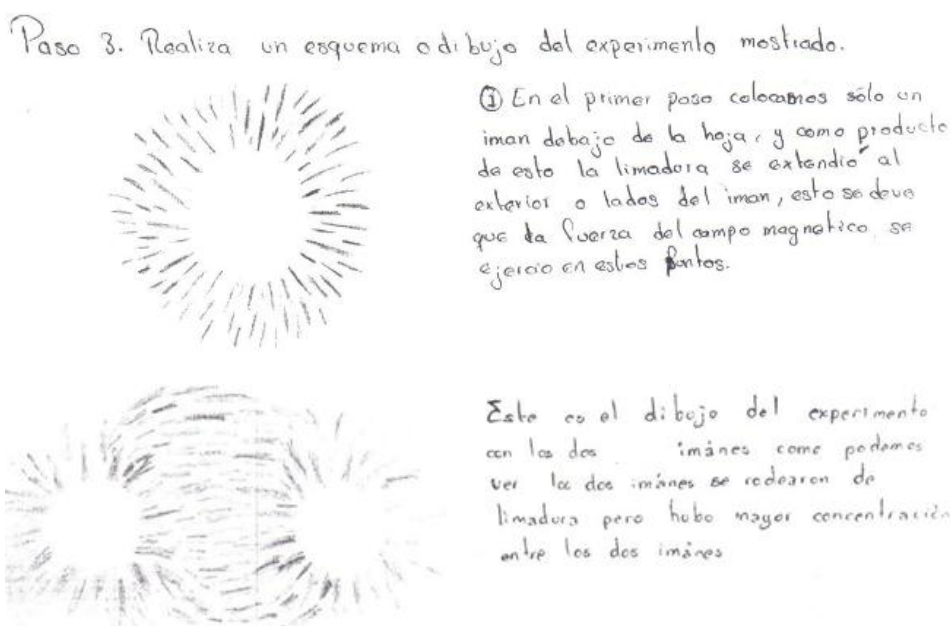 Paso 3. Realiza un esquema o dibujo del experimento mostrado.
① En el primer paso colocamos sólo un
iman debajo de la hoja, y como producto
de esto la limadura se extendió al
exterior o lados del iman, esto se deve
que la fuerza del campo magnetico se
ejercio en estos puntos.
Este es el dibujo del experimento
con los dos imánes como podemos
ver los dos imánes se rodearon de
limadura pero hubo mayor concentración
entre los dos imánes